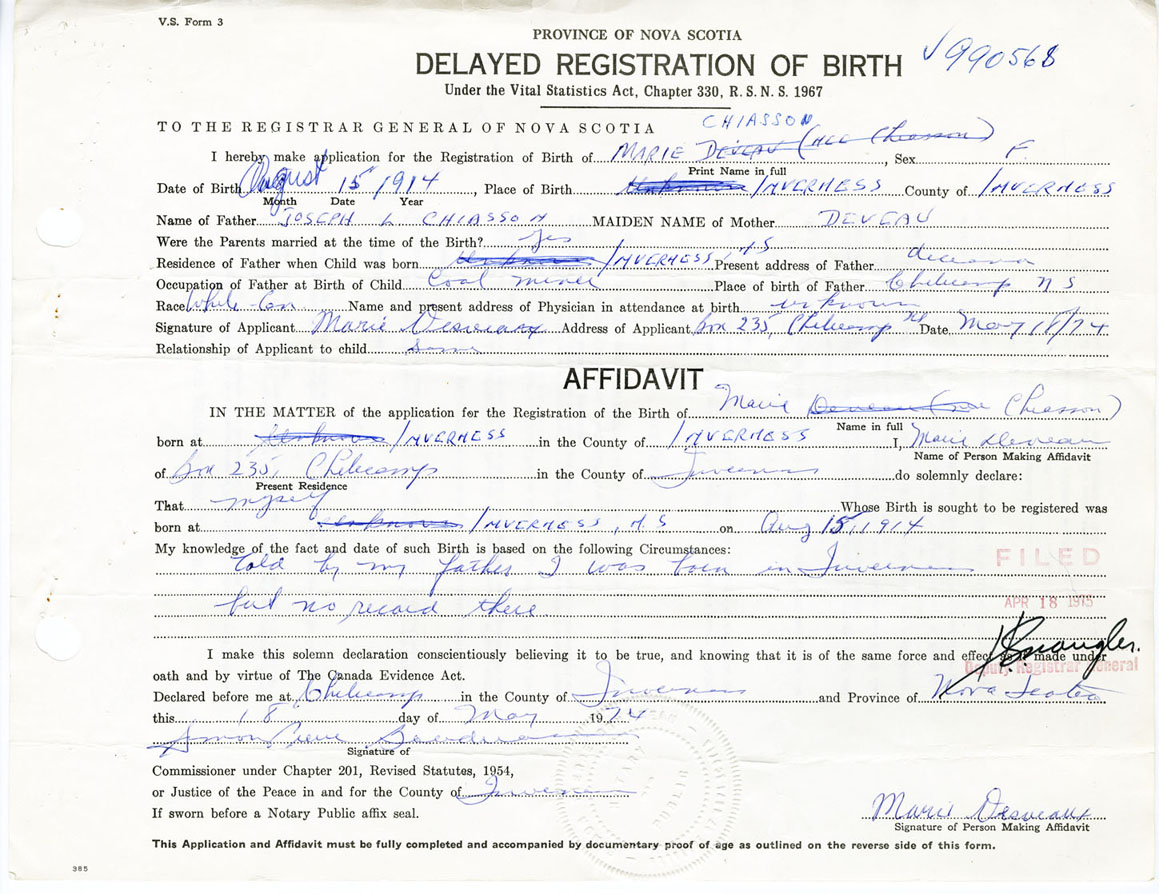 V.S. Form 3
PROVINCE OF NOVA SCOTIA
DELAYED REGISTRATION OF BIRTH
√990568
Under the Vital Statistics Act, Chapter 330, R.S.N.S. 1967
CHIASSON
TO THE REGISTRAR GENERAL OF NOVA SCOTIA
I hereby make application for the Registration of Birth of MARIE DEVEAU (nee Chiasson), Sex F.
Print Name in full
Date of Birth August 15 1914, Place of Birth Unknown INVERNESS County of INVERNESS
Month Date Year
Name of Father JOSEPH L CHIASSON MAIDEN NAME of Mother DEVEAU
Were the Parents married at the time of the Birth? Yes
Residence of Father when Child was born Unknown INVERNESS, NS Present address of Father
Occupation of Father at Birth of Child Coal miner Place of birth of Father Cheticamp NS
Race White Name and present address of Physician in attendance at birth unknown
Signature of Applicant Marie Desveaux Address of Applicant Box 235, Cheticamp Date May 18/74
Relationship of Applicant to child same
AFFIDAVIT
IN THE MATTER of the application for the Registration of the Birth of Marie Deveau (nee Chiasson)
Name in full
born at Unknown INVERNESS in the County of INVERNESS I, Marie Deveau
Name of Person Making Affidavit
of Box 235, Cheticamp in the County of Inverness do solemnly declare:
Present Residence
That myself Whose Birth is sought to be registered was
born at Unknown INVERNESS, NS on Aug 15, 1914
My knowledge of the fact and date of such Birth is based on the following Circumstances:
told by my father I was born in Inverness
FILED
but no record there
APR 18 1975
I make this solemn declaration conscientiously believing it to be true, and knowing that it is of the same force and effect as if made under
Deputy Registrar General
oath and by virtue of The Canada Evidence Act.
Declared before me at Cheticamp in the County of Inverness and Province of Nova Scotia
this 18 day of May 1974
Signature of
Commissioner under Chapter 201, Revised Statutes, 1954,
or Justice of the Peace in and for the County of Inverness
If sworn before a Notary Public affix seal.
Marie Desveaux
Signature of Person Making Affidavit
This Application and Affidavit must be fully completed and accompanied by documentary proof of age as outlined on the reverse side of this form.
385